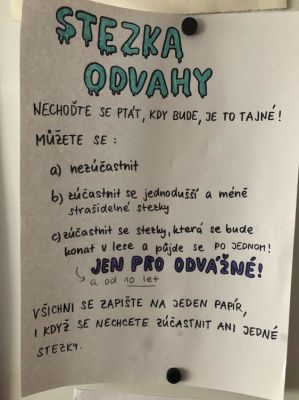 STEZKA
ODVAHY
NECHOĎTE SE PTÁT, KDY BUDE, JE TO TAJNÉ!
MŮŽETE SE:
a) nezúčastnit
b) zúčastnit se jednodušší a méně
strašidelné stezky
c) zúčastnit se stezky, která se bude
konat v lese a půjde se PO JEDNOM!
JEN PRO ODVÁŽNÉ!
↳ a od 10 let
VŠICHNI SE ZAPIŠTE NA JEDEN PAPÍR,
I KDYŽ SE NECHCETE ZÚČASTNIT ANI JEDNÉ
STEZKY.